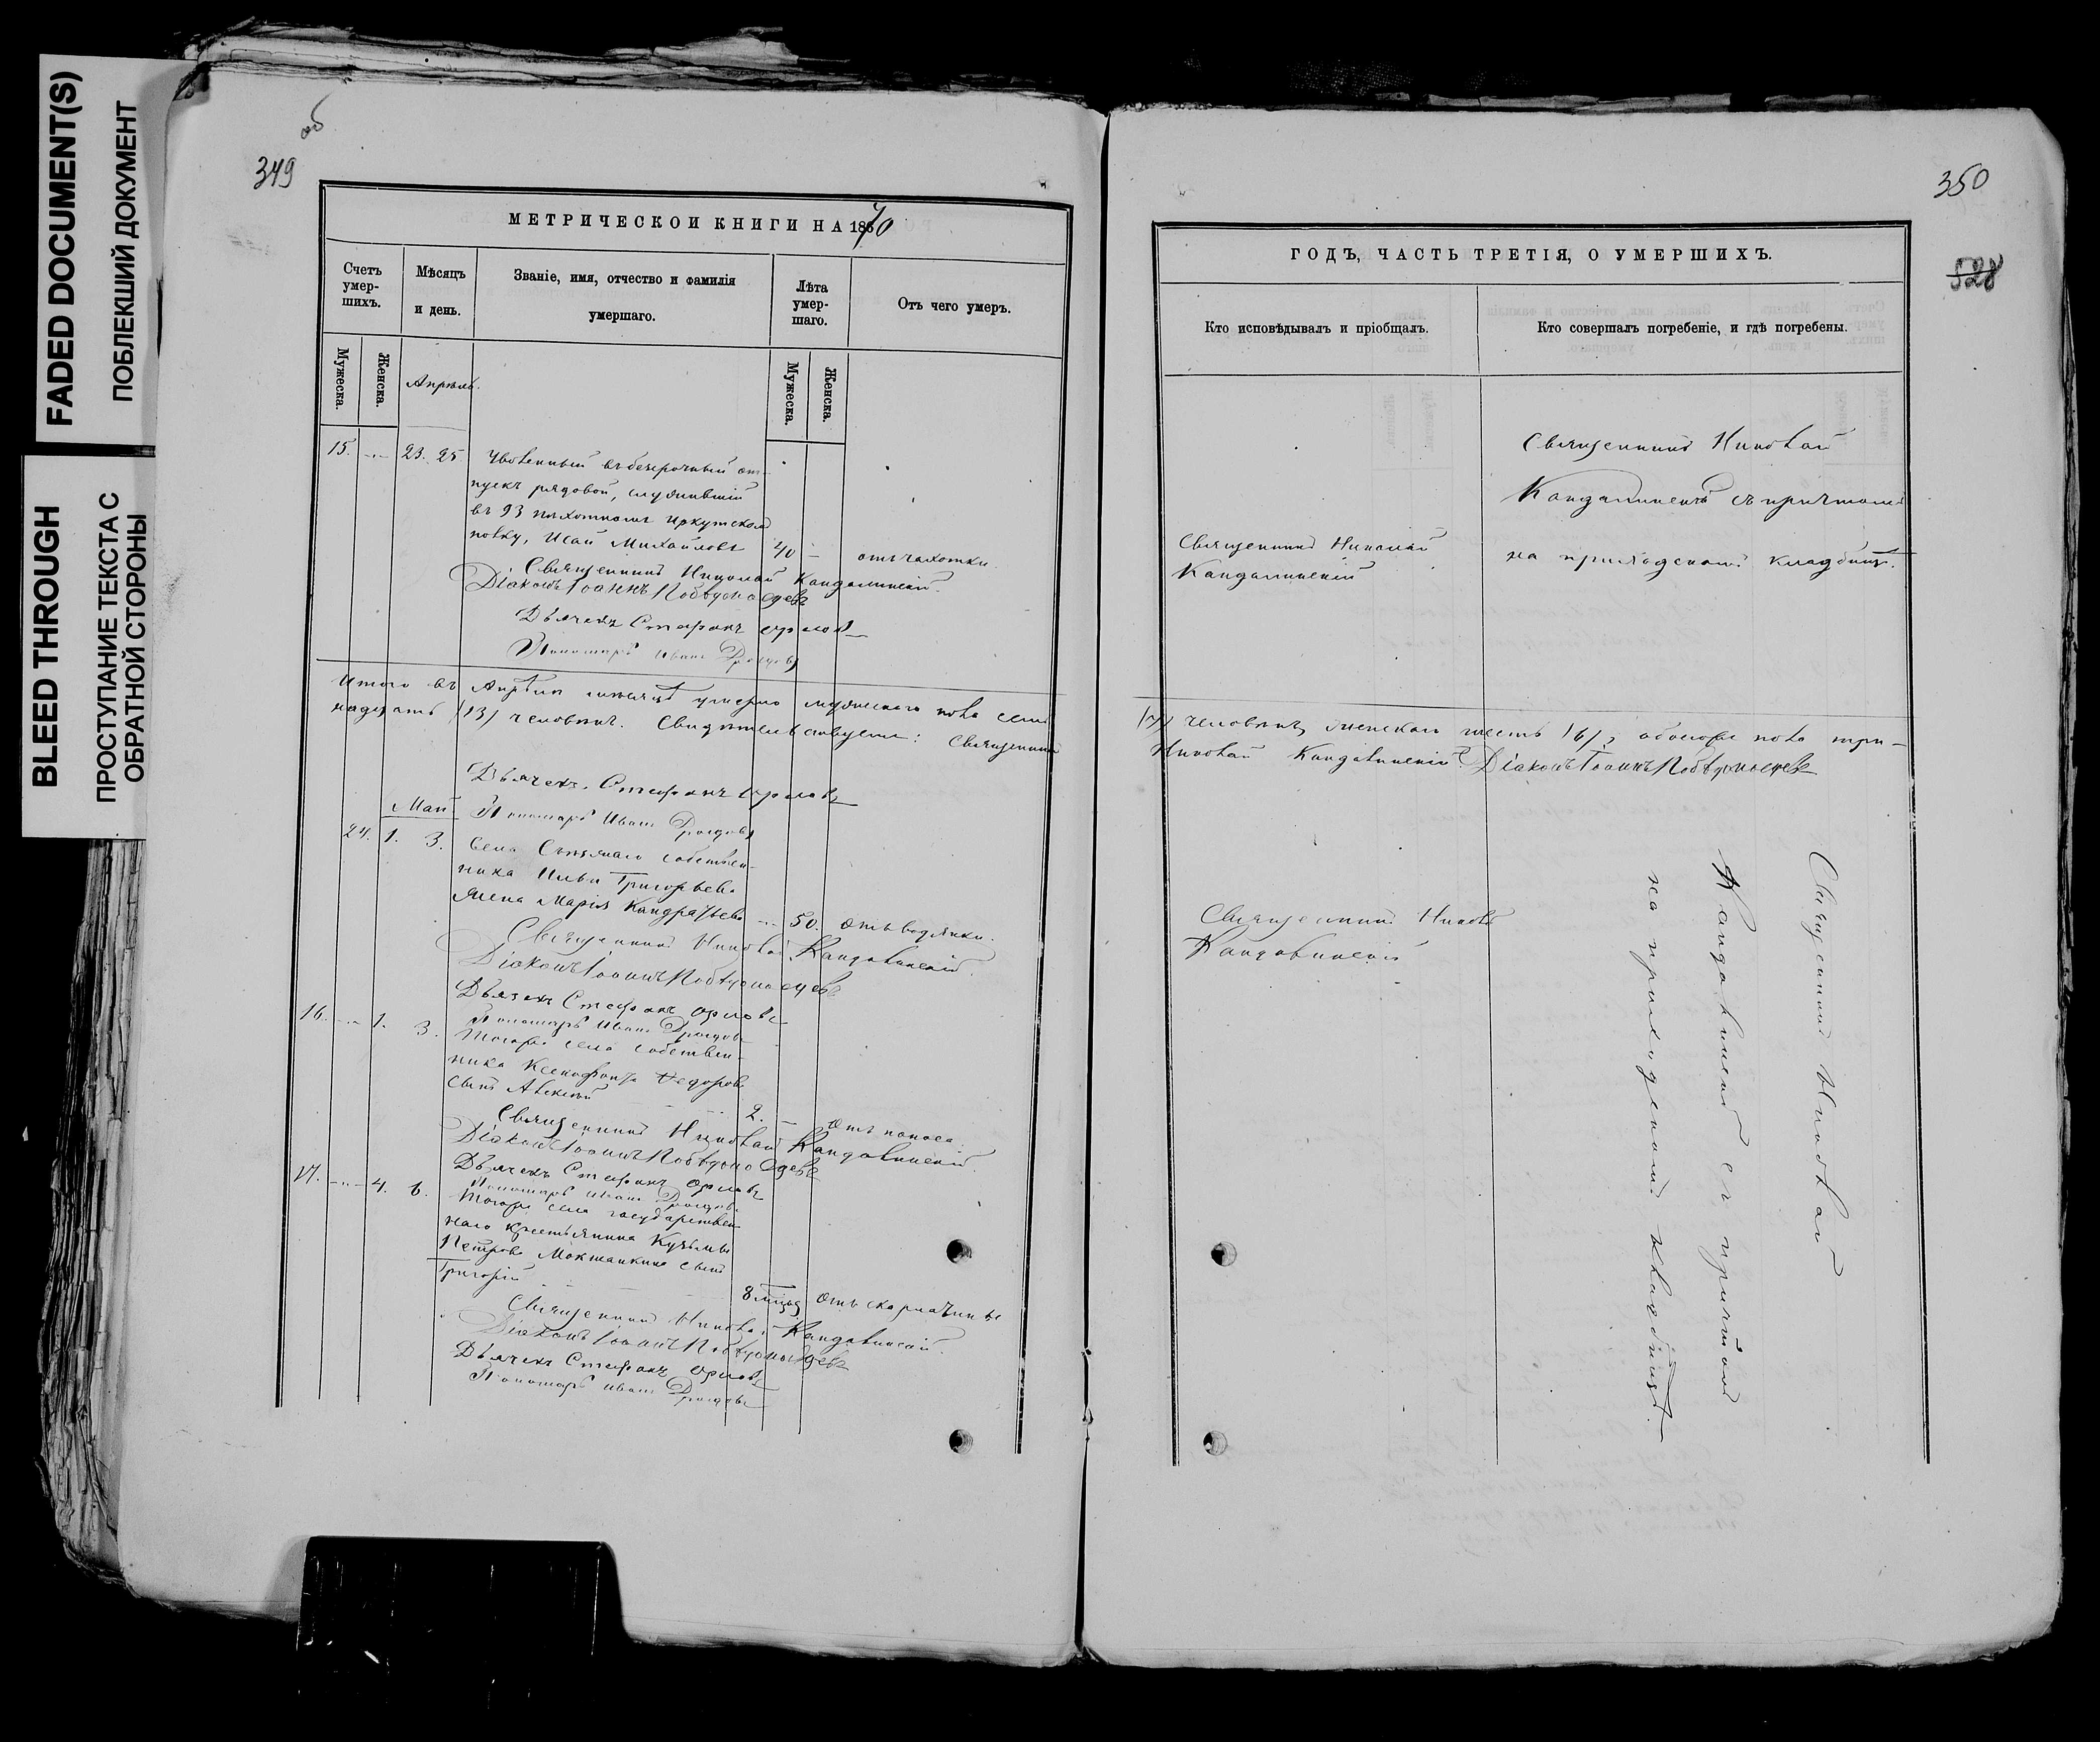 FADED DOCUMENT(S)
ПОБЛЕКШИЙ ДОКУМЕНТ
BLEED THROUGH
ПРОСТУПАНИЕ ТЕКСТА С
ОБРАТНОЙ СТОРОНЫ
об
349
МЕТРИЧЕСКОЙ КНИГИ НА 1870
Счетъ умер-шихъ.
Мѣсяцъ и день.
Званіе, имя, отчество и фамилія умершаго.
Лѣта умер-шаго.
Отъ чего умеръ.
Мужеска.
Женска.
Апрѣль.
Мужеска.
Женска.
15. 23. 25. Уволенный въ безсрочный от-
пускъ рядовой, служившій
въ 93 пѣхотномъ Иркутскомъ
полку, Исай Михайловъ 40 — отъ чахотки.
Священникъ Николай Кандалинскій.
Діаконъ Іоаннъ Побѣдоносцевъ
Дьячекъ Стефанъ Орловъ
Пономарь Иванъ Дроздовъ
Итого въ Апрѣлѣ мѣсяцѣ умерло мужескаго пола семь
надцать (13) человѣкъ. Свидѣтельствуемъ: Священникъ
Дьячекъ Стефанъ Орловъ
Пономарь Иванъ Дроздовъ
Май
24. 1. 3. Села собствен-
ника Ильи Григорьева
жена Марія Кандратьева 50. отъ водянки.
Священникъ Николай Кандалинскій.
Діаконъ Іоаннъ Побѣдоносцевъ
Дьячекъ Стефанъ Орловъ
Пономарь Иванъ Дроздовъ
16. 1. 3. Тогоже села собствен-
ника Ксенофонта Ѳедорова
сынъ Алексѣй 2. — отъ поноса.
Священникъ Николай Кандалинскій.
Діаконъ Іоаннъ Побѣдоносцевъ
Дьячекъ Стефанъ Орловъ
Пономарь Иванъ Дроздовъ
17. 4. 6. Тогоже села государствен
наго крестьянина Кузьмы
Петрова сынъ
Григорій 8 мѣсяц отъ скарлатины
Священникъ Николай Кандалинскій.
Діаконъ Іоаннъ Побѣдоносцевъ
Дьячекъ Стефанъ Орловъ
Пономарь Иванъ Дроздовъ
350
528
ГОДЪ, ЧАСТЬ ТРЕТІЯ, О УМЕРШИХЪ.
Кто исповѣдывалъ и пріобщалъ.
Кто совершалъ погребеніе, и гдѣ погребены.
Священникъ Николай
Кандалинскій
Священникъ Николай
Кандалинскій съ причтомъ
на приходскомъ кладбищѣ.
(7) человѣкъ, женскаго шесть (6), обоегоже пола три-
Николай Кандалинскій. Діаконъ Іоаннъ Побѣдоносцевъ
Священникъ Николай
Кандалинскій
Священникъ Николай
Кандалинскій съ причтомъ
на приходскомъ кладбищѣ.